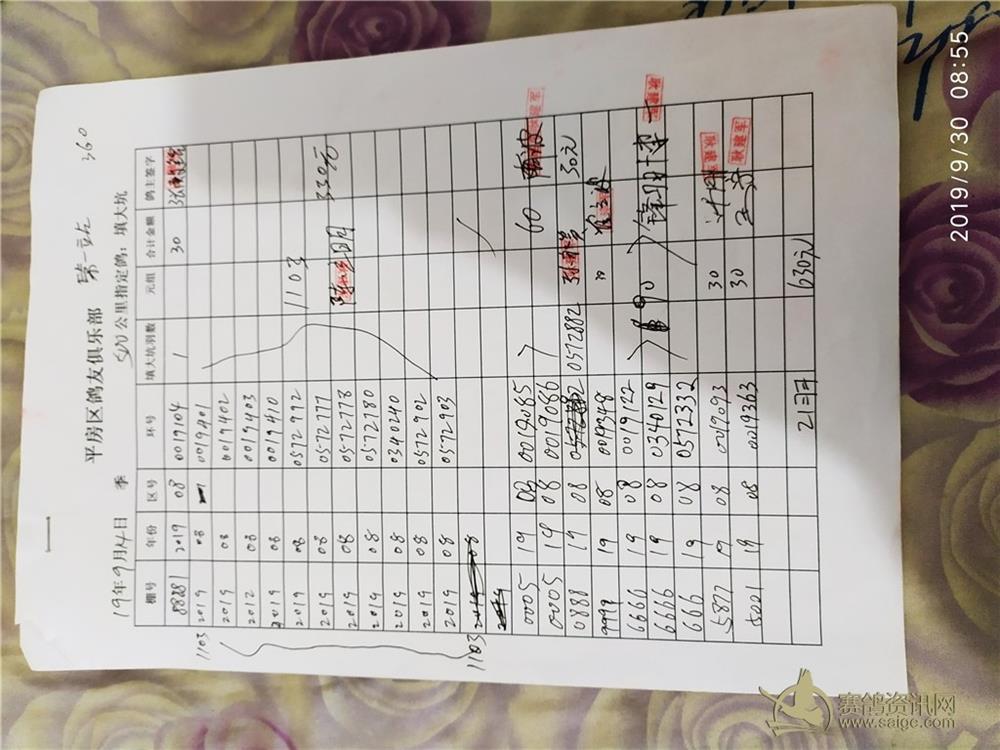 平房区鸽友俱乐部 第一站 360
19年9月14日 季 500公里指定鸽：填大坑
棚号 年份 区号 环号 填大坑羽数 元组 合计金额 鸽主签字
88881 2019 08 0019104 1 30
1103 2019 08 0019401
2019 08 0019402
2012 08 0019403
2019 08 0019410 1103
2019 08 0572992
2019 08 0572777 330元
2019 08 0572778
2019 08 0572780
2019 08 0340240
2019 08 0572902
2019 08 0572903
1103
0005 19 08 0019085 60
0005 19 08 0019086
0888 19 08 0572882 30元
9999 19 08 0019348 30
6666 19 08 0019122
6666 19 08 0340129 90
666 19 08 0572332
5877 19 08 0019093 30
5001 19 08 0019363 30 耿建军
21羽 630元
2019/9/30 08:55
赛鸽资讯网
www.saige.com